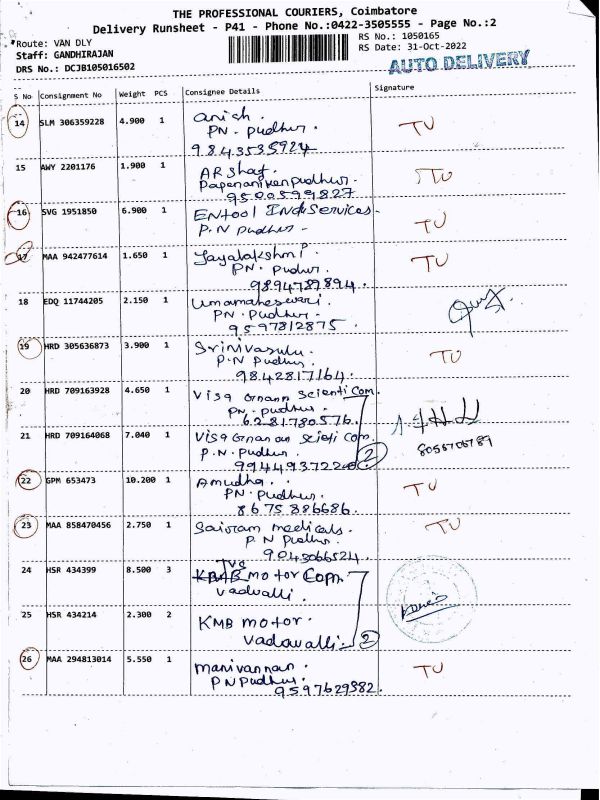 THE PROFESSIONAL COURIERS, Coimbatore
Delivery Runsheet - P41 - Phone No.:0422-3505555 - Page No.:2
*Route: VAN DLY
RS No.: 1050165
Staff: GANDHIRAJAN
RS Date: 31-Oct-2022
DRS No.: DCJB105016502
AUTO DELIVERY
S No Consignment No Weight PCS Consignee Details Signature
14 SLM 306359228 4.900 1 Anish. TU
PN. Pudhur.
9843535924
15 AWY 2201176 1.900 1 ARshaf. TU
Papanaickenpudhur.
9500599827
16 SVG 1951850 6.900 1 Entool Ind Services. TU
P.N Pudhur.
17 MAA 942477614 1.650 1 Jayalakshmi. TU
PN. Pudhur.
9894787894.
18 EDQ 11744205 2.150 1 Umamaheswari.
PN. Pudhur.
9597812875.
19 HRD 305636873 3.900 1 Srinivasulu. TU
P.N Pudhur.
9842817164.
20 HRD 709163928 4.650 1 Visa Gnann Scienti Com.
PN. Pudhur.
6281780576.
21 HRD 709164068 7.040 1 Visa Gnanan Scieti Com.
P.N. Pudhur. 2
22 GPM 653473 10.200 1 Amudha. TU
PN. Pudhur.
8675886686.
23 MAA 858470456 2.750 1 Sairam medicals. TU
P.N Pudhur.
9043066524.
24 HSR 434399 8.500 3 TVS motor Com.
Vadvalli.
25 HSR 434214 2.300 2 KMB motor.
Vadavalli. 2
26 MAA 294813014 5.550 1 Manivannan. TU
P N Pudhur.
9597629382.